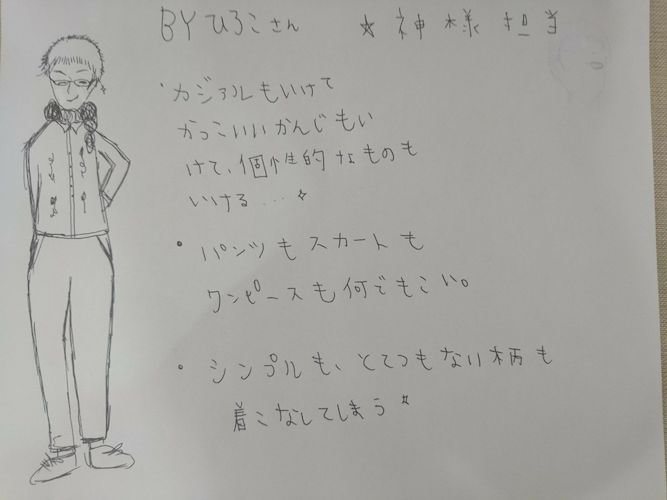 BYひろこさん ☆神様担当
・カジアルもいけて
かっこいいかんじもい
けて、個性的なものも
いける…☆
・パンツもスカートも
ワンピースも何でもこい。
・シンプルも、とてつもない柄も
着こなしてしまう☆